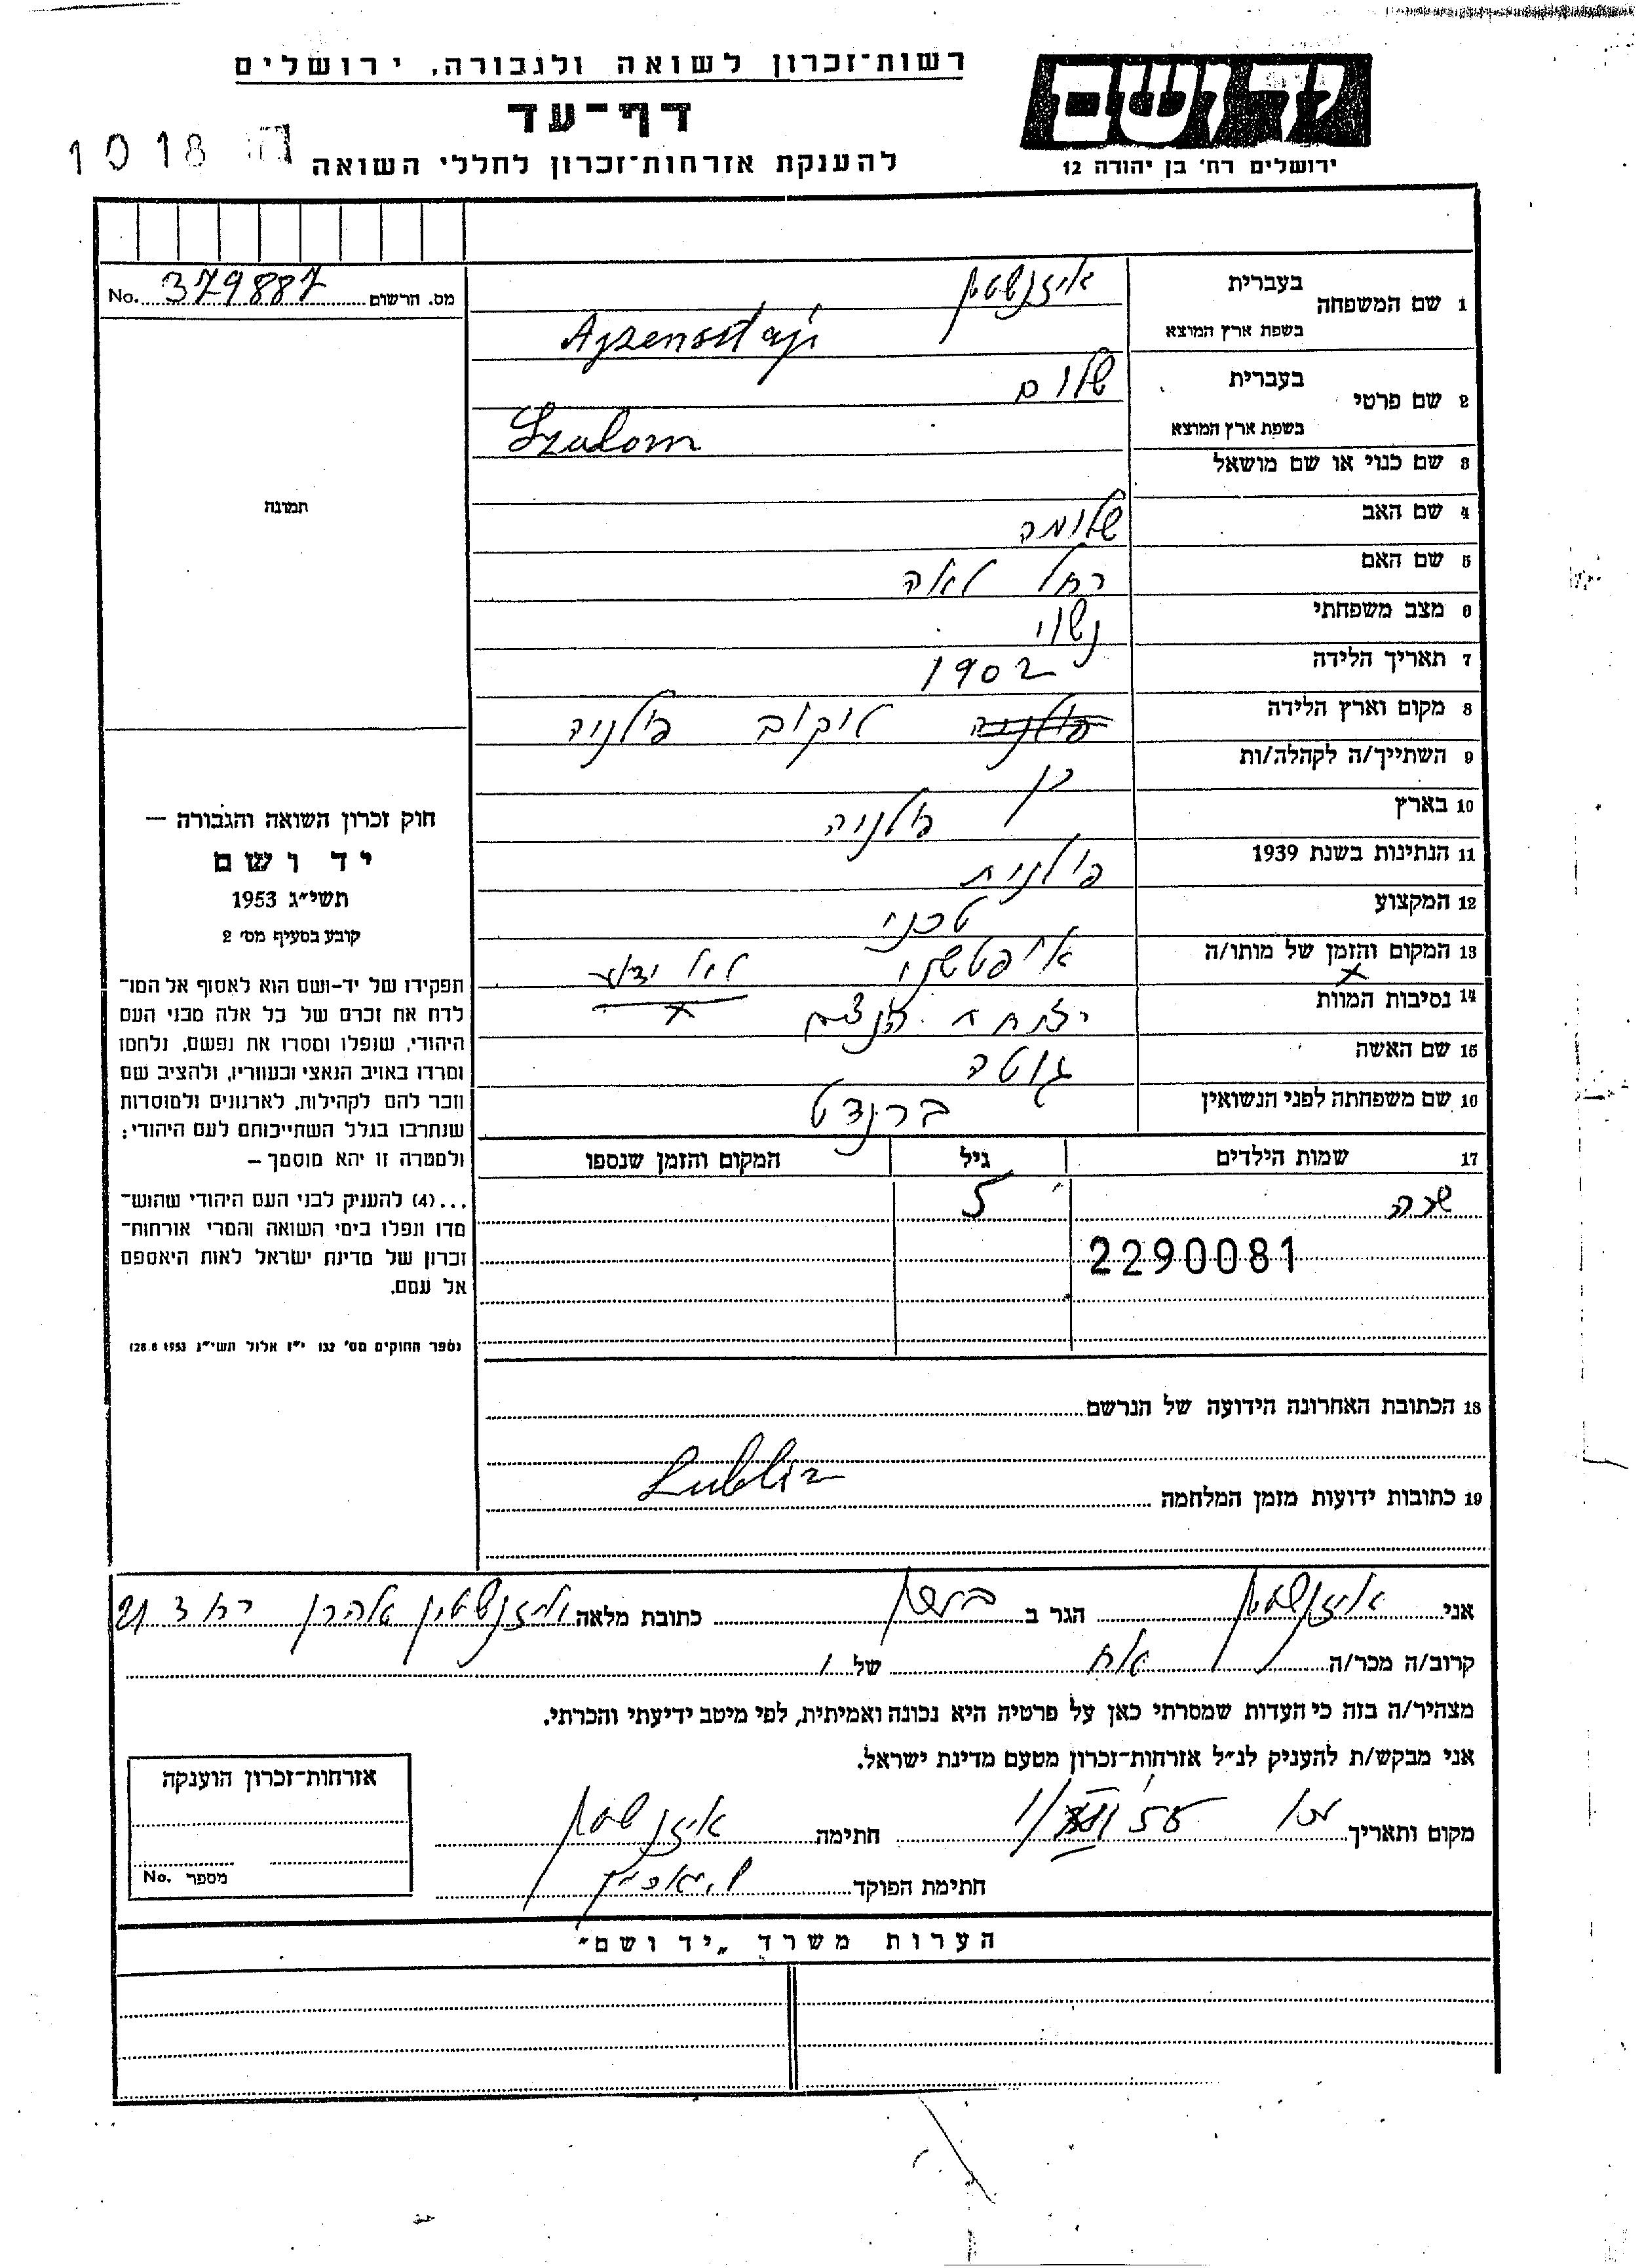 רשות־זכרון לשואה ולגבורה, ירושלים
דף־עד
להענקת אזרחות־זכרון לחללי השואה
יד ושם
ירושלים רח' בן יהודה 12
1018
מס. הרשום 379887 No.
1 שם המשפחה בעברית איזנשטטין
בשפת ארץ המוצא
2 שם פרטי בעברית שלום
בשפת ארץ המוצא Szalom
3 שם כנוי או שם מושאל
4 שם האב שלומה
5 שם האם רחל לאה
6 מצב משפחתי נשוי
7 תאריך הלידה 1902
8 מקום וארץ הלידה לוקוב פולניה
9 השתייך/ה לקהלה/ות כן
10 בארץ פולניה
11 הנתינות בשנת 1939 פולנית
12 המקצוע טכני
13 המקום והזמן של מותו/ה לא ידוע
14 נסיבות המוות
15 שם האשה גוטה
16 שם משפחתה לפני הנשואין ברנדט
17 שמות הילדים גיל המקום והזמן שנספו
שרה 5
2290081
18 הכתובת האחרונה הידועה של הנרשם
Lublin
19 כתובות ידועות מזמן המלחמה
תמונה
חוק זכרון השואה והגבורה —
יד ושם
תשי״ג 1953
קובע בסעיף מס' 2
תפקידו של יד־ושם הוא לאסוף אל המו־
לדת את זכרם של כל אלה מבני העם
היהודי, שנפלו ומסרו את נפשם, נלחמו
ומרדו באויב הנאצי ובעוזריו, ולהציב שם
וזכר להם לקהילות, לארגונים ולמוסדות
שנחרבו בגלל השתייכותם לעם היהודי;
ולמטרה זו יהא מוסמך —
...(4) להעניק לבני העם היהודי שהוש־
מדו ונפלו בימי השואה והמרי אזרחות־
זכרון של מדינת ישראל לאות היאספם
אל עמם.
(ספר החוקים מס' 132 י״ז אלול תשי״ג 28.8.1953)
אני הגר ב כתובת מלאה איזנשטיין אהרן
קרוב/ה מכר/ה אח של
מצהיר/ה בזה כי העדות שמסרתי כאן על פרטיה היא נכונה ואמיתית, לפי מיטב ידיעתי והכרתי.
אני מבקש/ת להעניק לנ״ל אזרחות־זכרון מטעם מדינת ישראל.
מקום ותאריך חתימה
חתימת הפוקד
אזרחות־זכרון הוענקה
מספר No.
הערות משרד „יד ושם״